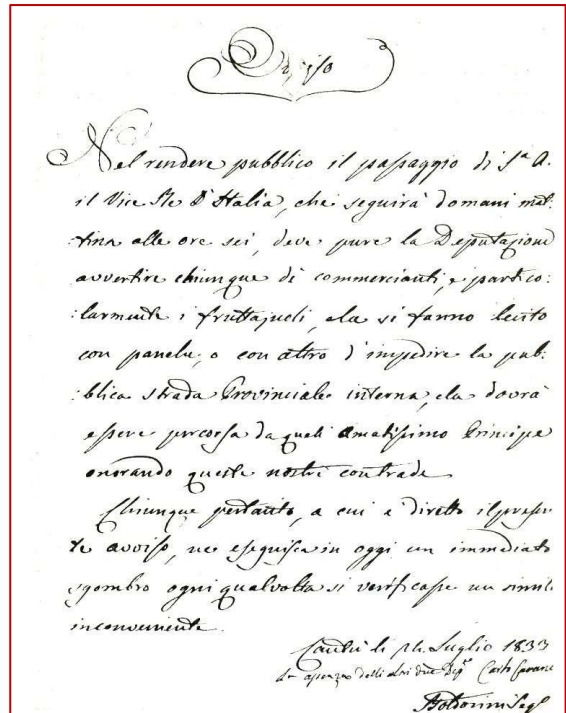 Avviso
Nel rendere pubblico il passaggio di S.ª A.
il Vice Re d'Italia, che seguirà domani mat:
:tina alle ore sei, deve pure la Deputazione
avvertire chiunque di commercianti, e partico:
:larmente i fruttajueli, che si fanno lecito
con panche, o con altro d'impedire la pub:
:blica strada Provinciale interna, che dovrà
essere percorsa da quell amatissimo Principe
onorando queste nostre contrade
Chiunque pertanto, a cui è diretto il presen
te avviso, ne eseguisca in oggi un immediato
sgombro ogni qualvolta si verificasse un simile
inconveniente.
Cantù li Luglio 1833
assenza delli altri due Dep.ⁱ Carlo
Seg.º